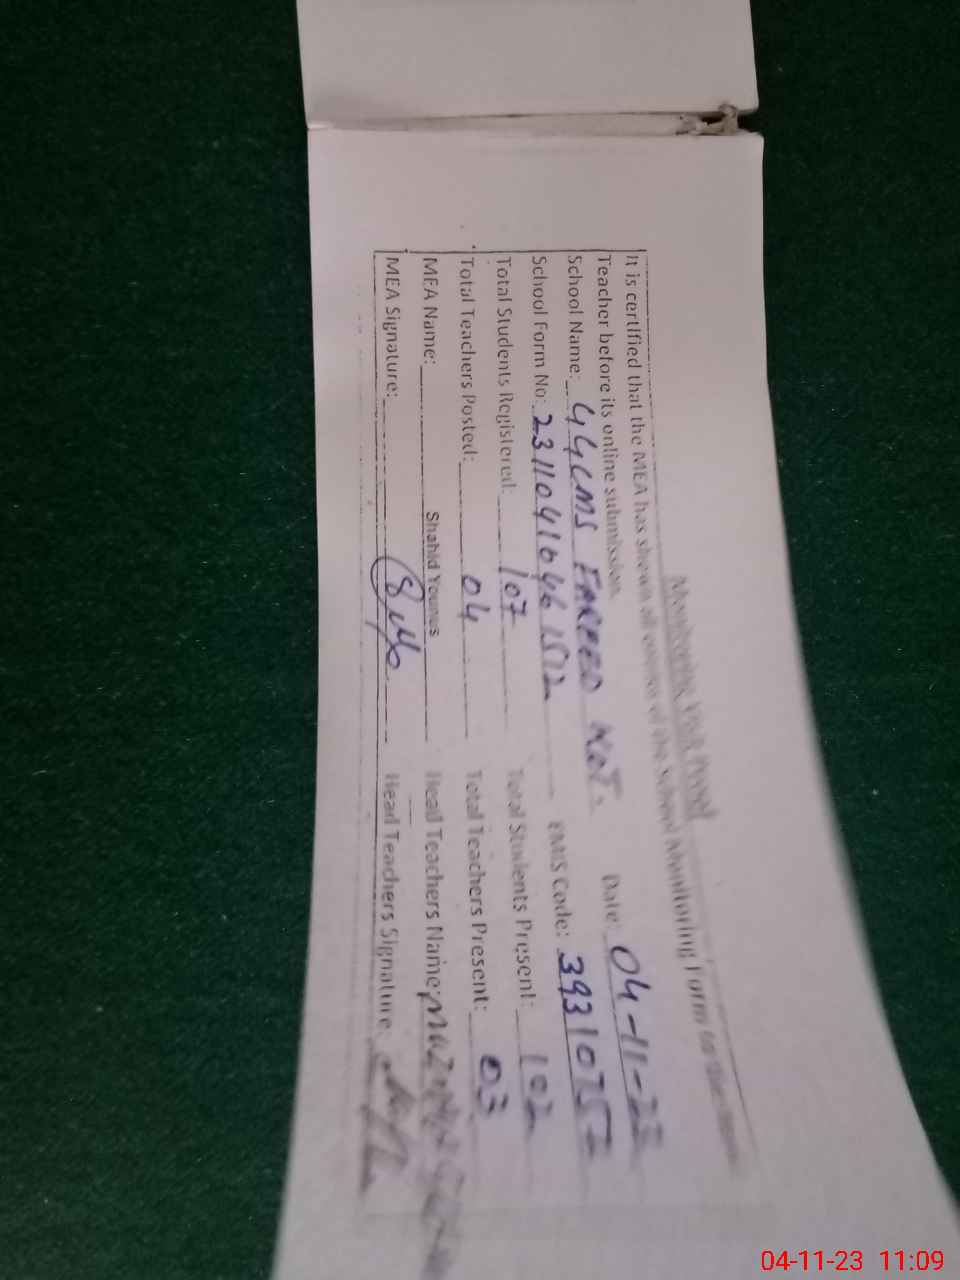 Monitoring Visit Proof
It is certified that the MEA has shown all entries of the School Monitoring Form to the
Teacher before its online submission.
School Name: GGCMS FAREED KOT. Date: 04-11-23
School Form No: EMIS Code:
Total Students Registered: 107 Total Students Present: 102
Total Teachers Posted: 04 Total Teachers Present: 03
MEA Name: Shahid Younus Head Teachers Name:
MEA Signature: Head Teachers Signature:
04-11-23 11:09